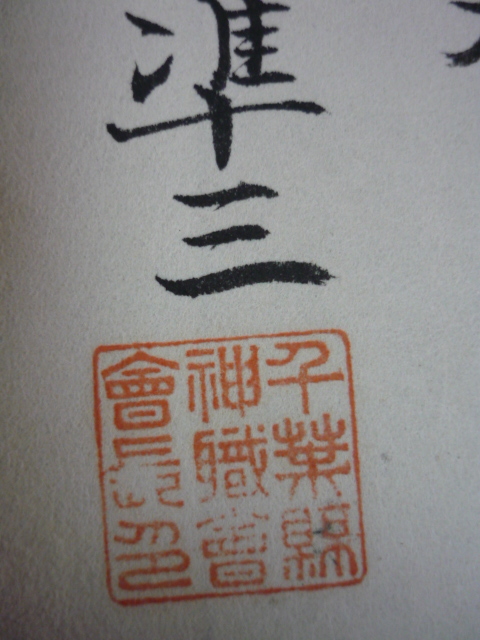 準三
千葉縣
神職會
會長印